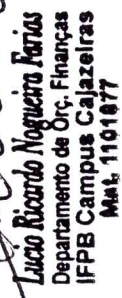 Lúcio Ricardo Nogueira Farias
Departamento de Orç. Finanças
IFPB Campus Cajazeiras
Mat. 1101877